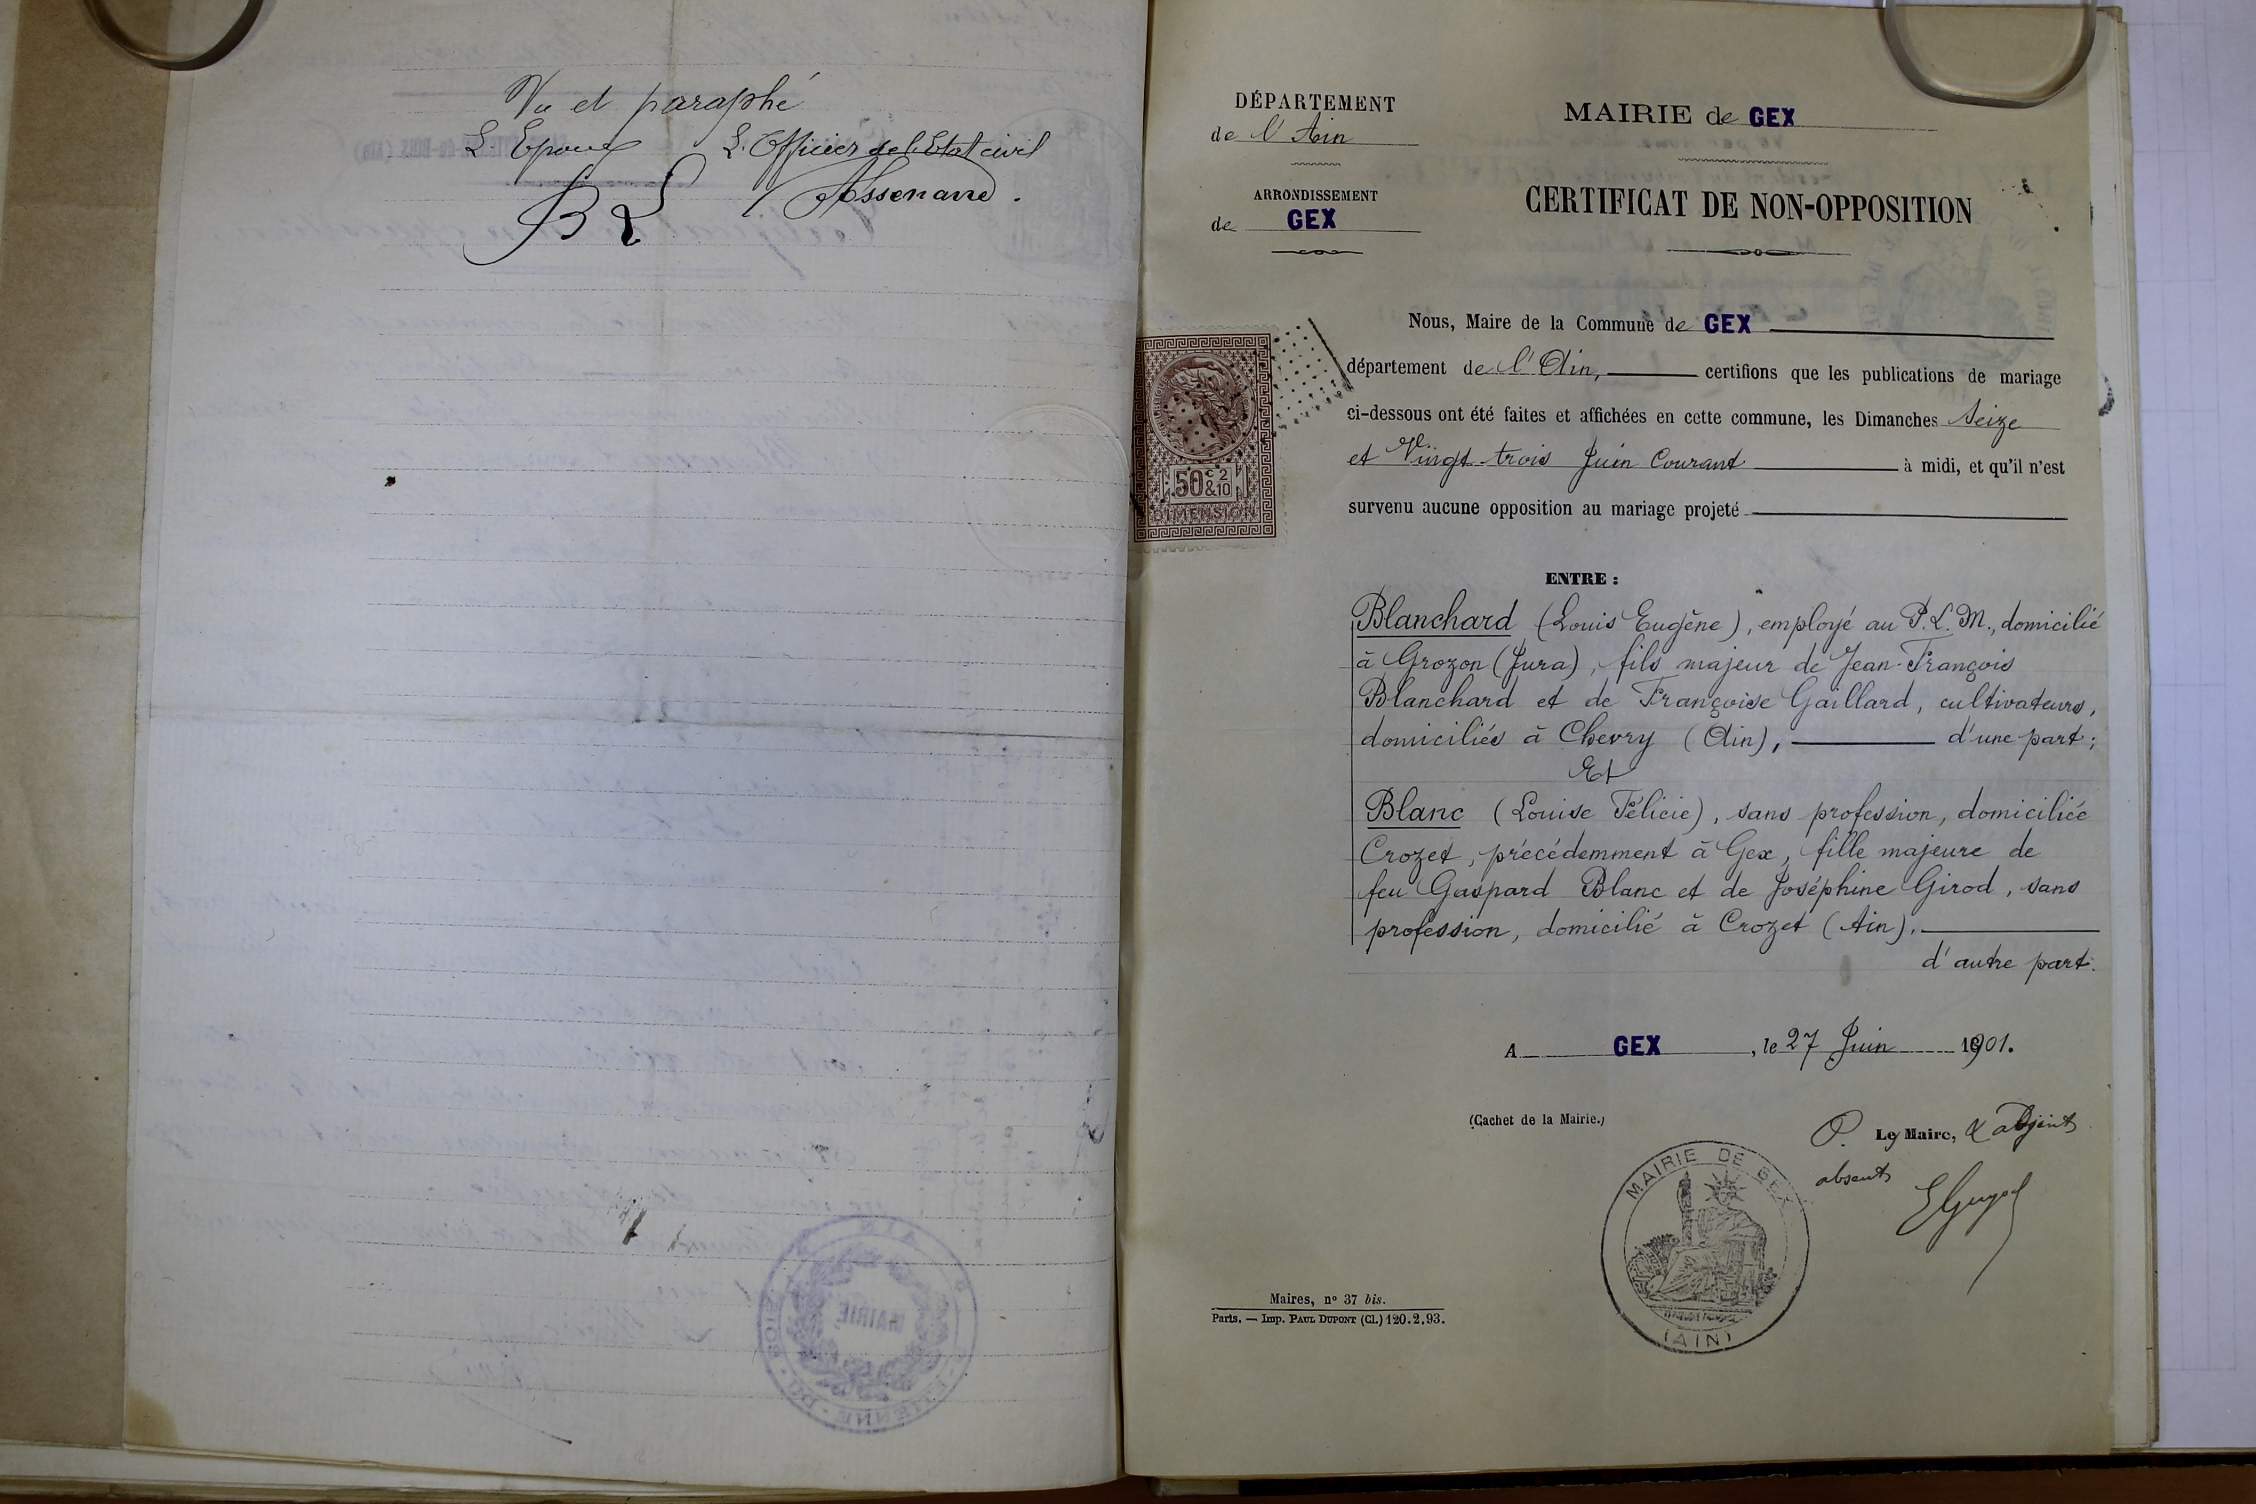 Vu et paraphé
L'Epoux L'Officier de l'Etat civil
DÉPARTEMENT
de l'Ain
ARRONDISSEMENT
de GEX
MAIRIE de GEX
CERTIFICAT DE NON-OPPOSITION
Nous, Maire de la Commune de GEX
département de l'Ain, certifions que les publications de mariage
ci-dessous ont été faites et affichées en cette commune, les Dimanches Seize
et Vingt-trois Juin Courant à midi, et qu'il n'est
survenu aucune opposition au mariage projeté
50c 2
&10
DIMENSION
ENTRE :
Blanchard (Louis Eugène), employé au P.L.M., domicilié
à Grozon (Jura), fils majeur de Jean-François
Blanchard et de Françoise Gaillard, cultivateurs,
domiciliés à Chevry (Ain), d'une part;
Et
Blanc (Louise Félicie), sans profession, domiciliée
Crozet, précédemment à Gex, fille majeure de
feu Gaspard Blanc et de Joséphine Girod, sans
profession, domicilié à Crozet (Ain).
d'autre part.
A GEX, le 27 Juin 1901.
(Cachet de la Mairie.)
P. Le Maire, & adjoint
absents
MAIRIE DE GEX
(AIN)
Maires, nº 37 bis.
Paris. — Imp. PAUL DUPONT (Cl.) 120.2.93.
MAIRIE